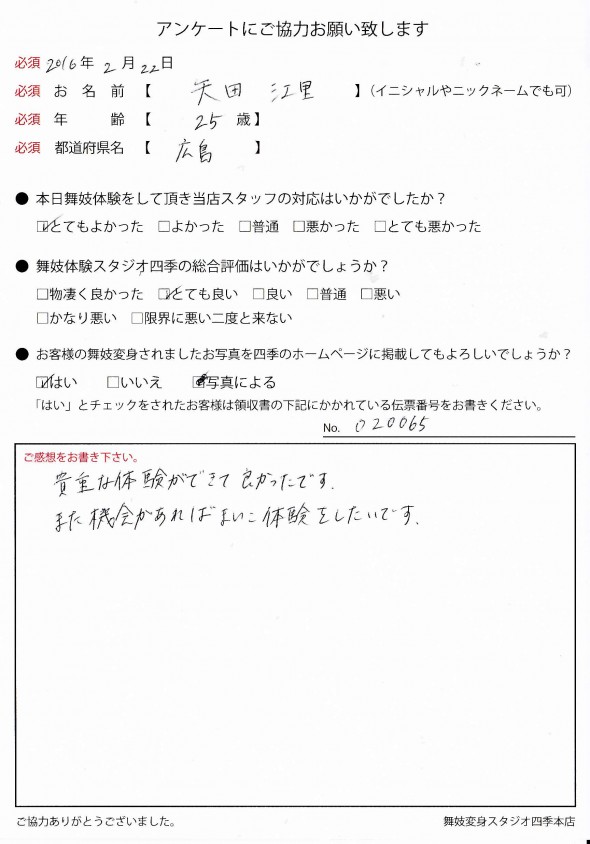 アンケートにご協力お願い致します
必須 2016年 2月 22日
必須 お名前【 矢田 江里 】(イニシャルやニックネームでも可)
必須 年齢【 25 歳】
必須 都道府県名【 広島 】
● 本日舞妓体験をして頂き当店スタッフの対応はいかがでしたか？
☑とてもよかった □よかった □普通 □悪かった □とても悪かった
● 舞妓体験スタジオ四季の総合評価はいかがでしょうか？
□物凄く良かった ☑とても良い □良い □普通 □悪い
□かなり悪い □限界に悪い二度と来ない
● お客様の舞妓変身されましたお写真を四季のホームページに掲載してもよろしいでしょうか？
☑はい □いいえ ☑写真による
「はい」とチェックをされたお客様は領収書の下記にかかれている伝票番号をお書きください。
No. 020065
ご感想をお書き下さい。
貴重な体験ができて良かったです.
また機会があればまいこ体験をしたいです.
ご協力ありがとうございました。
舞妓変身スタジオ四季本店